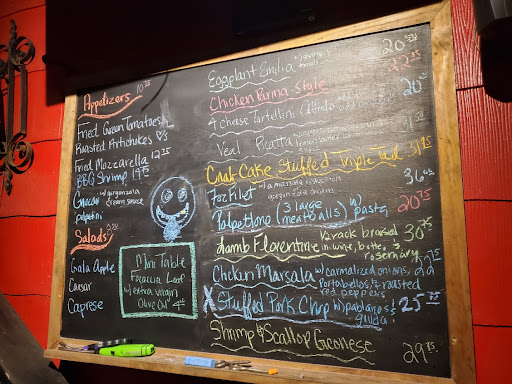 Appetizers 10
Fried Green Tomatoes
Roasted Artichokes
Fried Mozzarella 12
BBQ Shrimp 14
w/ gorgonzola
cream sauce
Salads
Gala Apple
Caesar
Caprese
Mari Table
Focaccia Loaf
w/ extra virgin
Olive Oil 4
Eggplant Emilia 20
Chicken Parma-Style 22
4 Cheese Tortellini Alfredo 20
Veal Picatta 31
Crab Cake Stuffed Triple Tail 31 95
7oz Filet w/ a marsala 36
Polpettone (3 large w/ pasta 20 75
meatballs)
Lamb Florentine 1/2 rack braised 30 75
in wine, butter, &
rosemary
Chicken Marsala w/ carmalized onions, 22
Portobellos, & roasted
red peppers
X Stuffed Pork Chop w/ poblanos & 25
gouda
Shrimp & Scallop Genovese 29 75